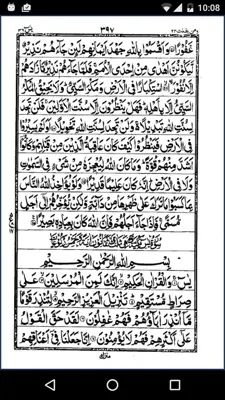 10:08
٣٩٧
غَفُوْرًا ۝ وَاَقْسَمُوْا بِاللّٰهِ جَهْدَ اَيْمَانِهِمْ لَئِنْ جَآءَهُمْ نَذِيْرٌ
لَّيَكُوْنُنَّ اَهْدٰى مِنْ اِحْدَى الْاُمَمِ فَلَمَّا جَآءَهُمْ نَذِيْرٌ مَّا زَادَهُمْ
اِلَّا نُفُوْرًا ۝ اسْتِكْبَارًا فِى الْاَرْضِ وَمَكْرَ السَّيِّئِ وَلَا يَحِيْقُ الْمَكْرُ
السَّيِّئُ اِلَّا بِاَهْلِهٖ فَهَلْ يَنْظُرُوْنَ اِلَّا سُنَّتَ الْاَوَّلِيْنَ فَلَنْ تَجِدَ
لِسُنَّتِ اللّٰهِ تَبْدِيْلًا وَلَنْ تَجِدَ لِسُنَّتِ اللّٰهِ تَحْوِيْلًا ۝ اَوَلَمْ يَسِيْرُوْا
فِى الْاَرْضِ فَيَنْظُرُوْا كَيْفَ كَانَ عَاقِبَةُ الَّذِيْنَ مِنْ قَبْلِهِمْ وَكَانُوْٓا
اَشَدَّ مِنْهُمْ قُوَّةً وَمَا كَانَ اللّٰهُ لِيُعْجِزَهٗ مِنْ شَيْءٍ فِى السَّمٰوٰتِ
وَلَا فِى الْاَرْضِ اِنَّهٗ كَانَ عَلِيْمًا قَدِيْرًا ۝ وَلَوْ يُؤَاخِذُ اللّٰهُ النَّاسَ
بِمَا كَسَبُوْا مَا تَرَكَ عَلٰى ظَهْرِهَا مِنْ دَآبَّةٍ وَّلٰكِنْ يُّؤَخِّرُهُمْ اِلٰٓى اَجَلٍ
مُّسَمًّى فَاِذَا جَآءَ اَجَلُهُمْ فَاِنَّ اللّٰهَ كَانَ بِعِبَادِهٖ بَصِيْرًا ۝
بِسْمِ اللّٰهِ الرَّحْمٰنِ الرَّحِيْمِ
يٰسٓ ۝ وَالْقُرْاٰنِ الْحَكِيْمِ ۝ اِنَّكَ لَمِنَ الْمُرْسَلِيْنَ ۝ عَلٰى
صِرَاطٍ مُّسْتَقِيْمٍ ۝ تَنْزِيْلَ الْعَزِيْزِ الرَّحِيْمِ ۝ لِتُنْذِرَ قَوْمًا
مَّآ اُنْذِرَ اٰبَآؤُهُمْ فَهُمْ غٰفِلُوْنَ ۝ لَقَدْ حَقَّ الْقَوْلُ
عَلٰٓى اَكْثَرِهِمْ فَهُمْ لَا يُؤْمِنُوْنَ ۝ اِنَّا جَعَلْنَا فِيْٓ اَعْنَاقِهِمْ